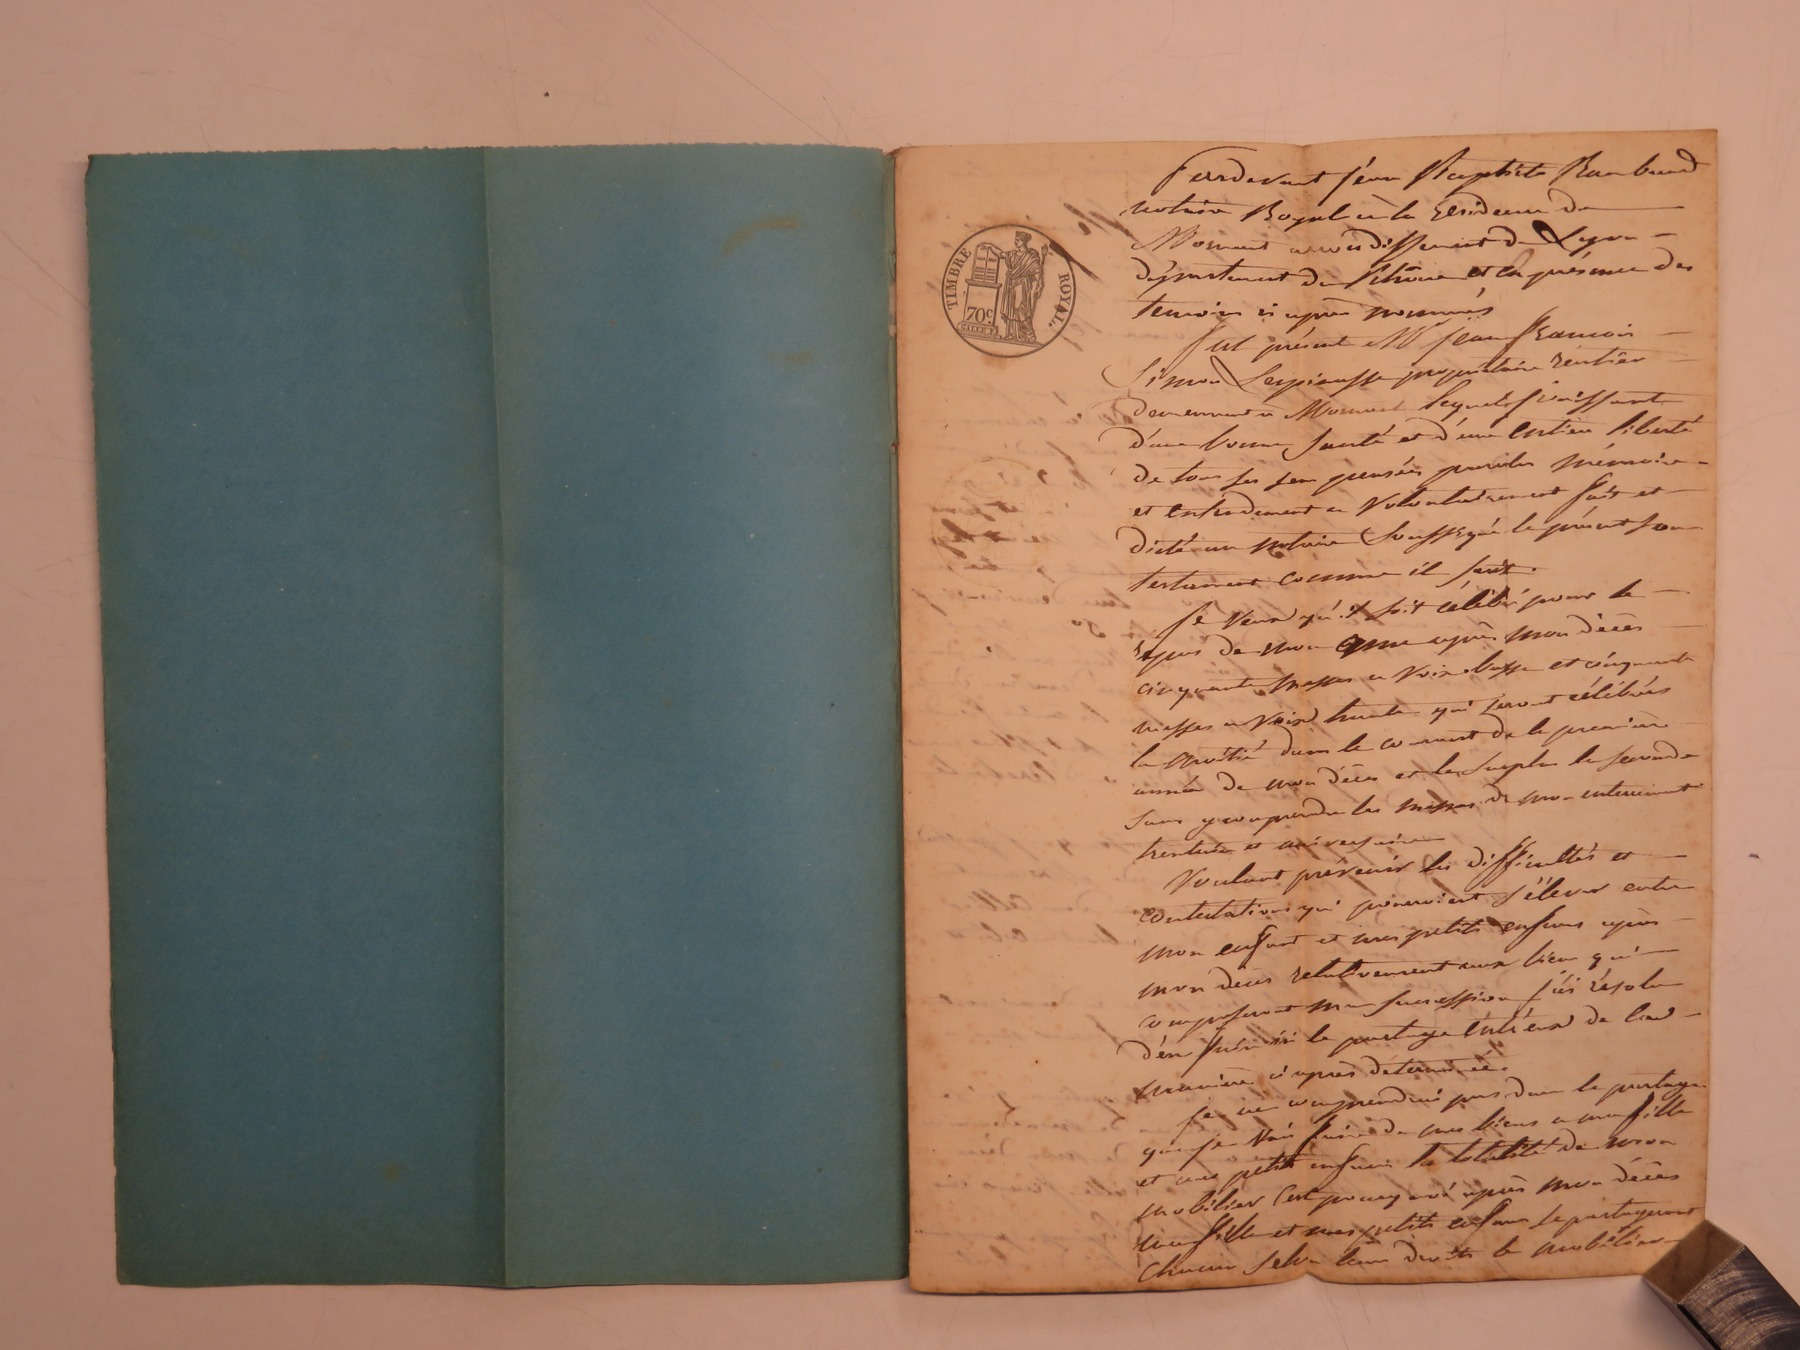 TIMBRE ROYAL.
70c
Pardevant Jéan Baptiste Rambaud
notaire Royal à la Residence de
Mornant arrondissement de Lyon
département du Rhône et en présence des
temoins ci après nommés
fut présent Mr Jean François
Simon propriétaire rentier
demeurant à Mornant lequel jouissant
d'une bonne Santé et d'une entiere liberté
de tous ses sens pensées paroles mémoire
et entendement a Volontairement fait et
dicté au notaire Soussigné le présent son
testament comme il Suit.
Je Veux qu'il soit célébré pour le
repos de mon ame après mon décès
cinquante messes a Voix basse et cinquante
messes a Voix haute qui seront célébrées
la moitié dans le courant de la premiere
année de mon décès et le Surplus la seconde
sans y comprendre les messes de mon enterrement
trentain et aniversaire
Voulant prévenir les difficultés et
contestations qui pourroient s'élever entre
mon enfant et mes petits enfans après
mon décès relativement aux biens qui
composeront ma succession j'ai résolu
d'en faire ici le partage entr'eux de la
manière ci après determinée.
Je ne comprendrai pas dans le partage
que je Vais faire de mes biens a ma fille
et mes petits enfans la totalité de mon
mobilier C'est pourquoi après mon décès
ma fille et mes petits enfans se partageront
chacun selon leurs droits le mobilier